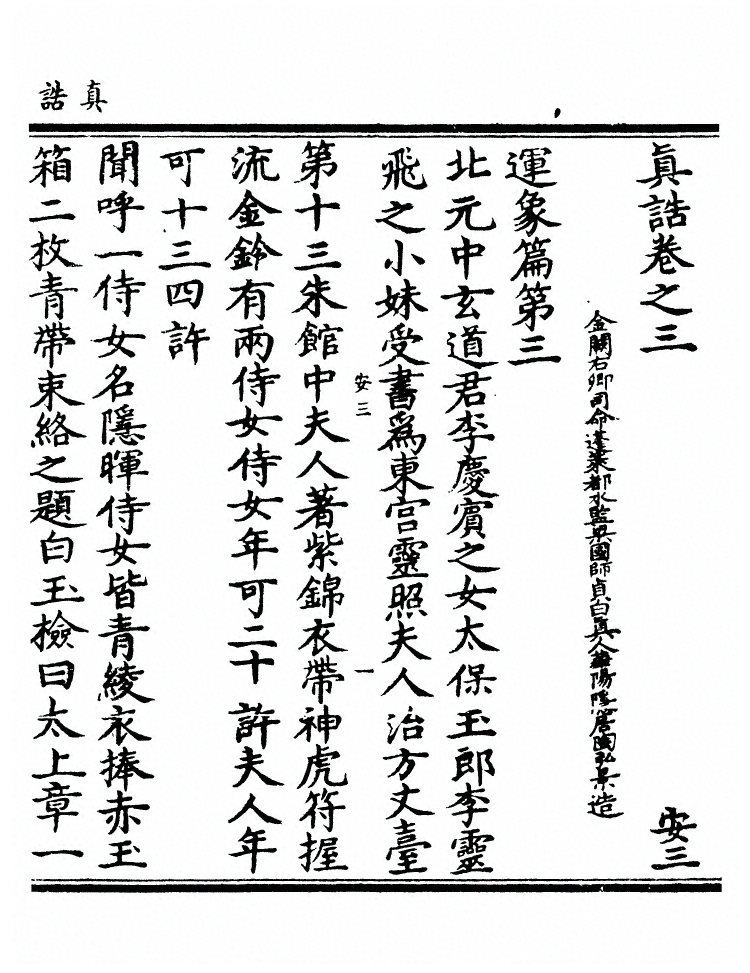 真誥
眞誥卷之三 安三
金闕右卿司命蓬萊都水監梁國師貞白眞人華陽隱居陶弘景造
運象篇第三
北元中玄道君李慶賓之女太保玉郎李靈
飛之小妹受書爲東宮靈照夫人治方丈臺
安三 一
第十三朱館中夫人著紫錦衣帶神虎符握
流金鈴有兩侍女侍女年可二十許夫人年
可十三四許
聞呼一侍女名隱暉侍女皆青綾衣捧赤玉
箱二枚青帶束絡之題白玉檢曰太上章一